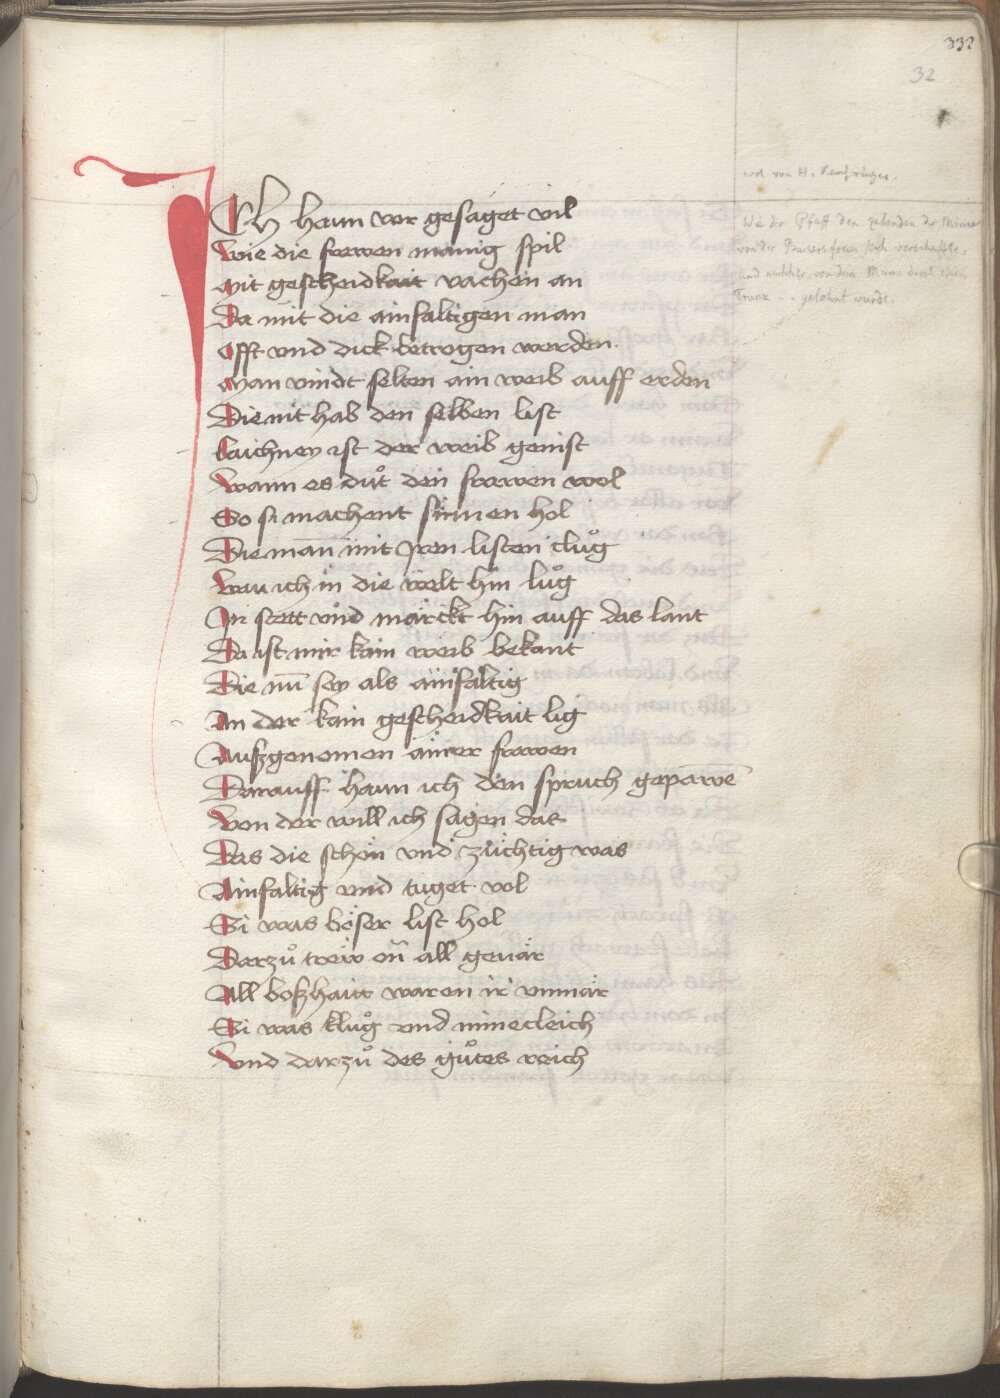 332
32
wol von H. Kaufringer.
Wie der Pfaff den zehenden der Minne
von der Bauersfrau sich verschaffte,
und nachher von dem Mann durch einen
Trunk .. gelohnt wurde.
Ich haun vor gesaget vil
Wie die frewen manig spil
Mit gescheidkait vachen an
Da mit die ainfaltigen man
Offt vnd dick betrogen werden
Man vindt selten ain weib auff erden
Die nit hab den selben list
laichney ist der weib genist
Wann es důt den frewen wol
So si machent sinnen hol
Die man mit Iren listen clůg
Wau ich in die welt hin lůg
In stett vnd märckt hin auff das lant
Da ist mir kain weib bekant
Die nū sey als ainfaltig
An der kain gescheidkait lig
Auszgenomen ainer frewen
Darauff haun ich den spruch gepawē
Von der will ich sagen das
Das die schön vnd züchtig was
Ainfaltig vnd tuget vol
Si was böser list hol
Darzů trew on all geuär
All boszhait waren ir vnmär
Si was klůg vnd minecleich
Vnd darzů des gůtes reich